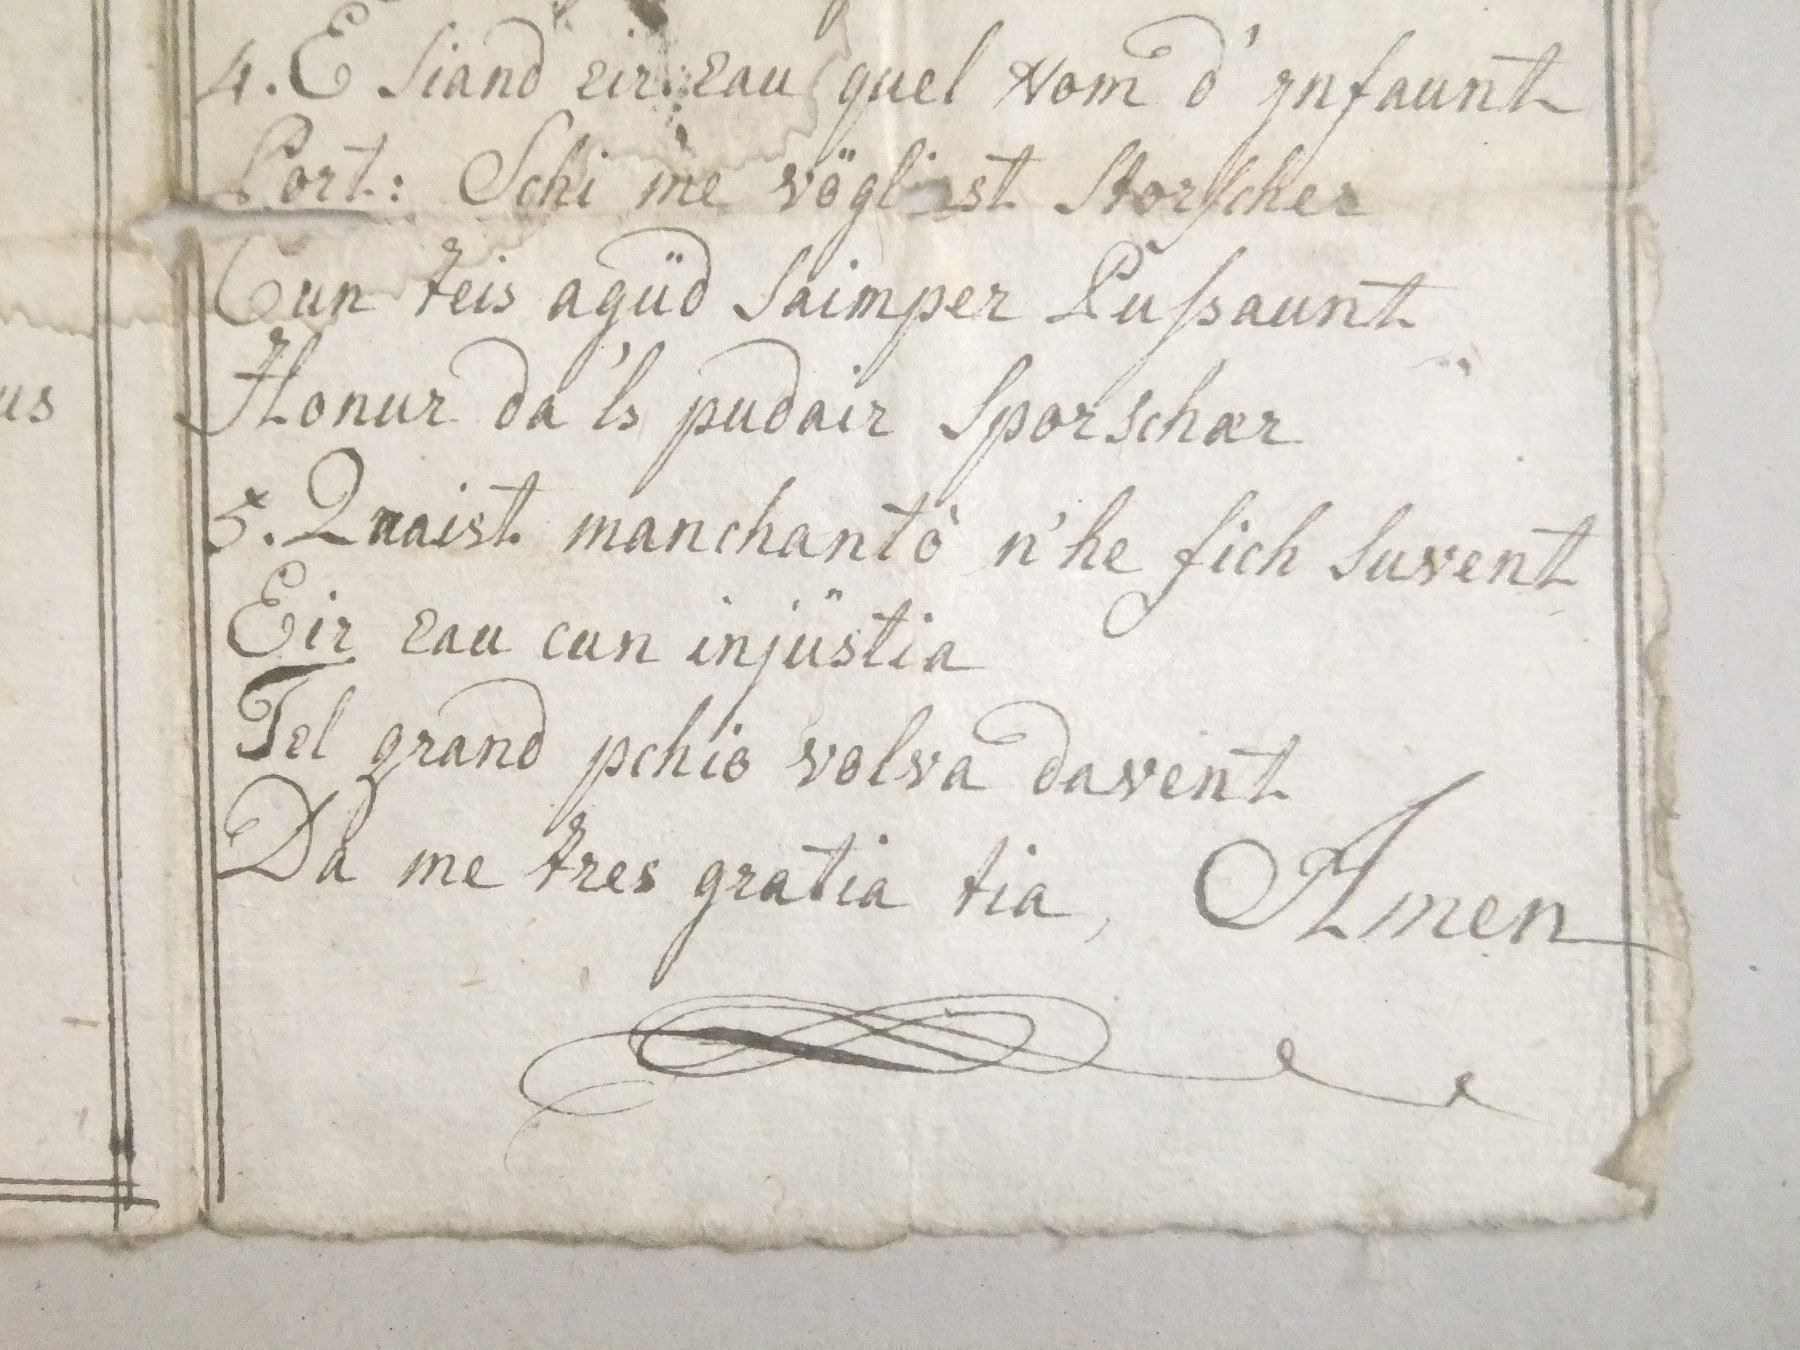 4. E siand eir eau quel Nom d' ynfaunt
Port: Schi me vögliast storscher
Cun teis agüd saimper Pussaunt
Honur da 'ls pudair sporschær
5. Quaist manchantò n'he fich suvent
Eir eau cun injüstia
Tel grand pchio volva davent
Da me tres gratia tia, Amen
us